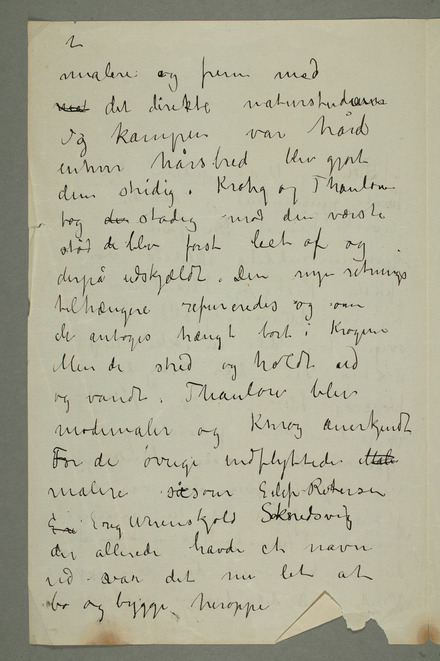 2
malere og frem med
det direkte naturstudium
Og kampen var hård
enhver hårsbred blev gjort
dem stridig. Krohg og Thaulow
tog stadig mod den værste
stöd de blev først leet af og
derpå udskjældt. Den nye retnings
tilhængere refuseredes og om
de antoges hængt bort i Krogene
Men de stred og holdt ud
og vandt. Thaulow blev
modemaler og Krog anerkjendt
For de øvrige indflyttede
malere såsom Eilif Petersen
Erig Werenskjold Skredsvig
der allerede havde et navn
ud var det nu let at
bo og bygge heroppe